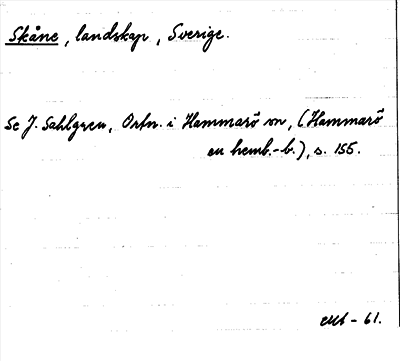 Skåne, landskap, Sverige.
Se J. Sahlgren, Ortn. i Hammarö sn, (Hammarö
en hemb.-b.), s. 155.
-61.